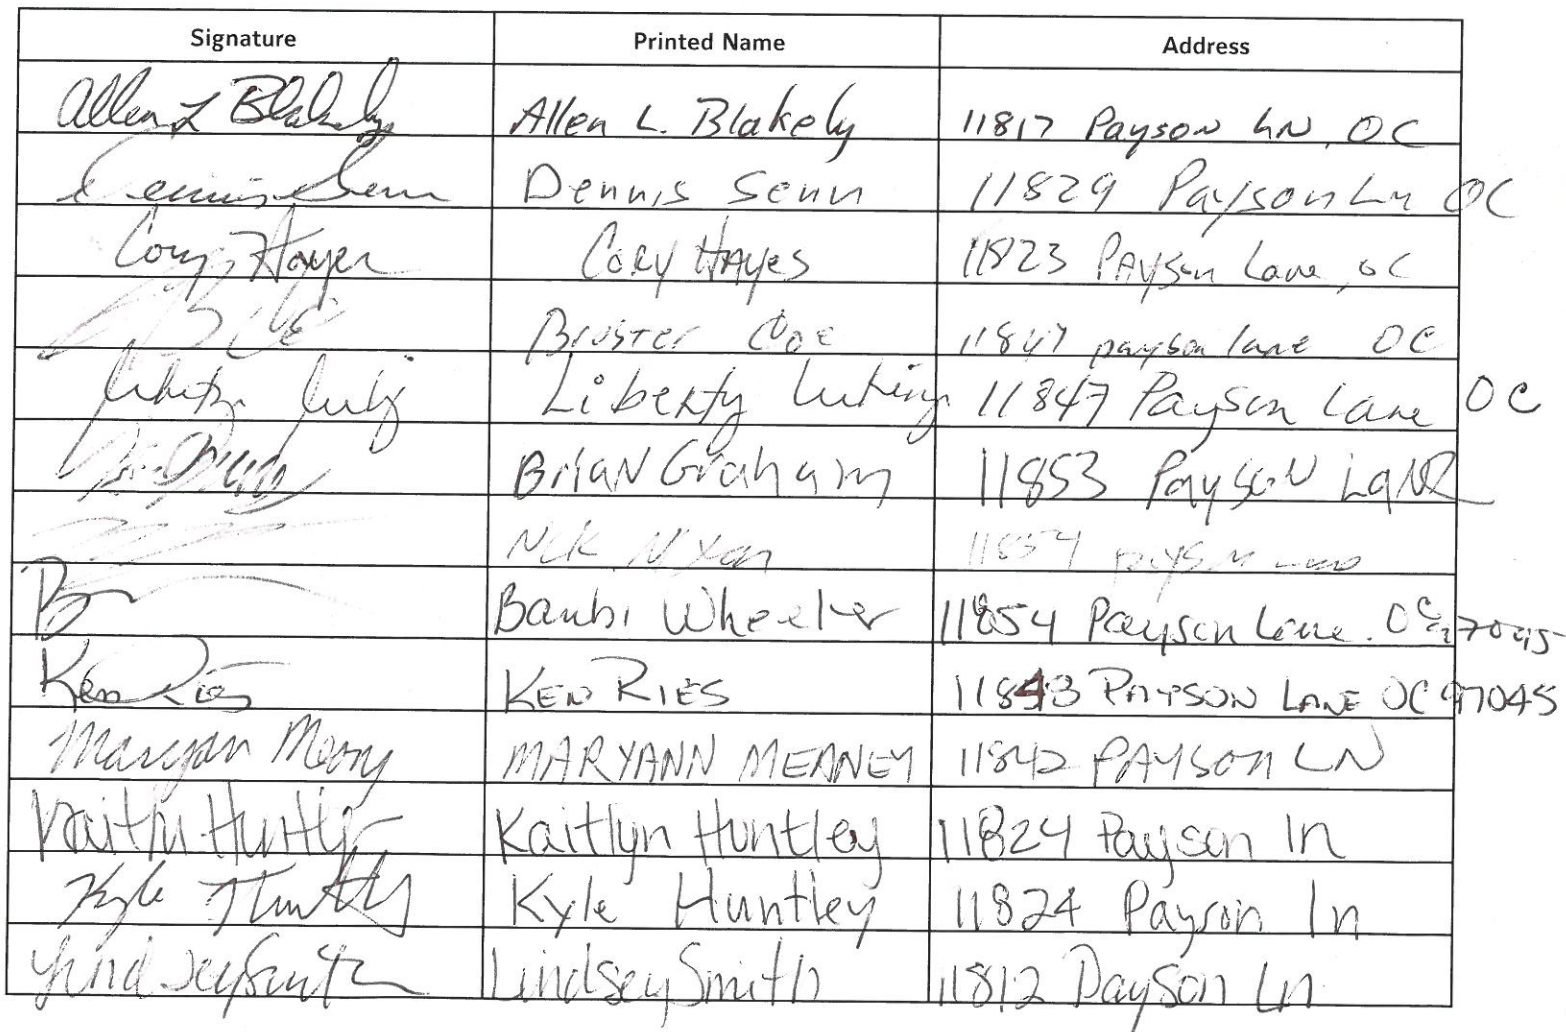 Signature Printed Name Address
Allen L Blakely Allen L. Blakely 11817 Payson LN, OC
Dennis Senn Dennis Senn 11829 Payson Ln OC
Cory Hayes Cory Hayes 11823 Payson Lane, OC
Coe 11847 payson lane OC
Liberty 11847 Payson Lane OC
Brian Graham 11853 Payson Lane
Nick Nixon 11854
B Bambi Wheeler 11854 Payson Lane. OC 97045
Ken Ries KEN RIES 11843 PAYSON LANE OC 97045
Maryann Meaney MARYANN MEANEY 11842 PAYSON LN
Kaitlyn Huntley Kaitlyn Huntley 11824 Payson ln
Kyle Huntley Kyle Huntley 11824 Payson ln
Lindsey Smith Lindsey Smith 11812 Payson Ln